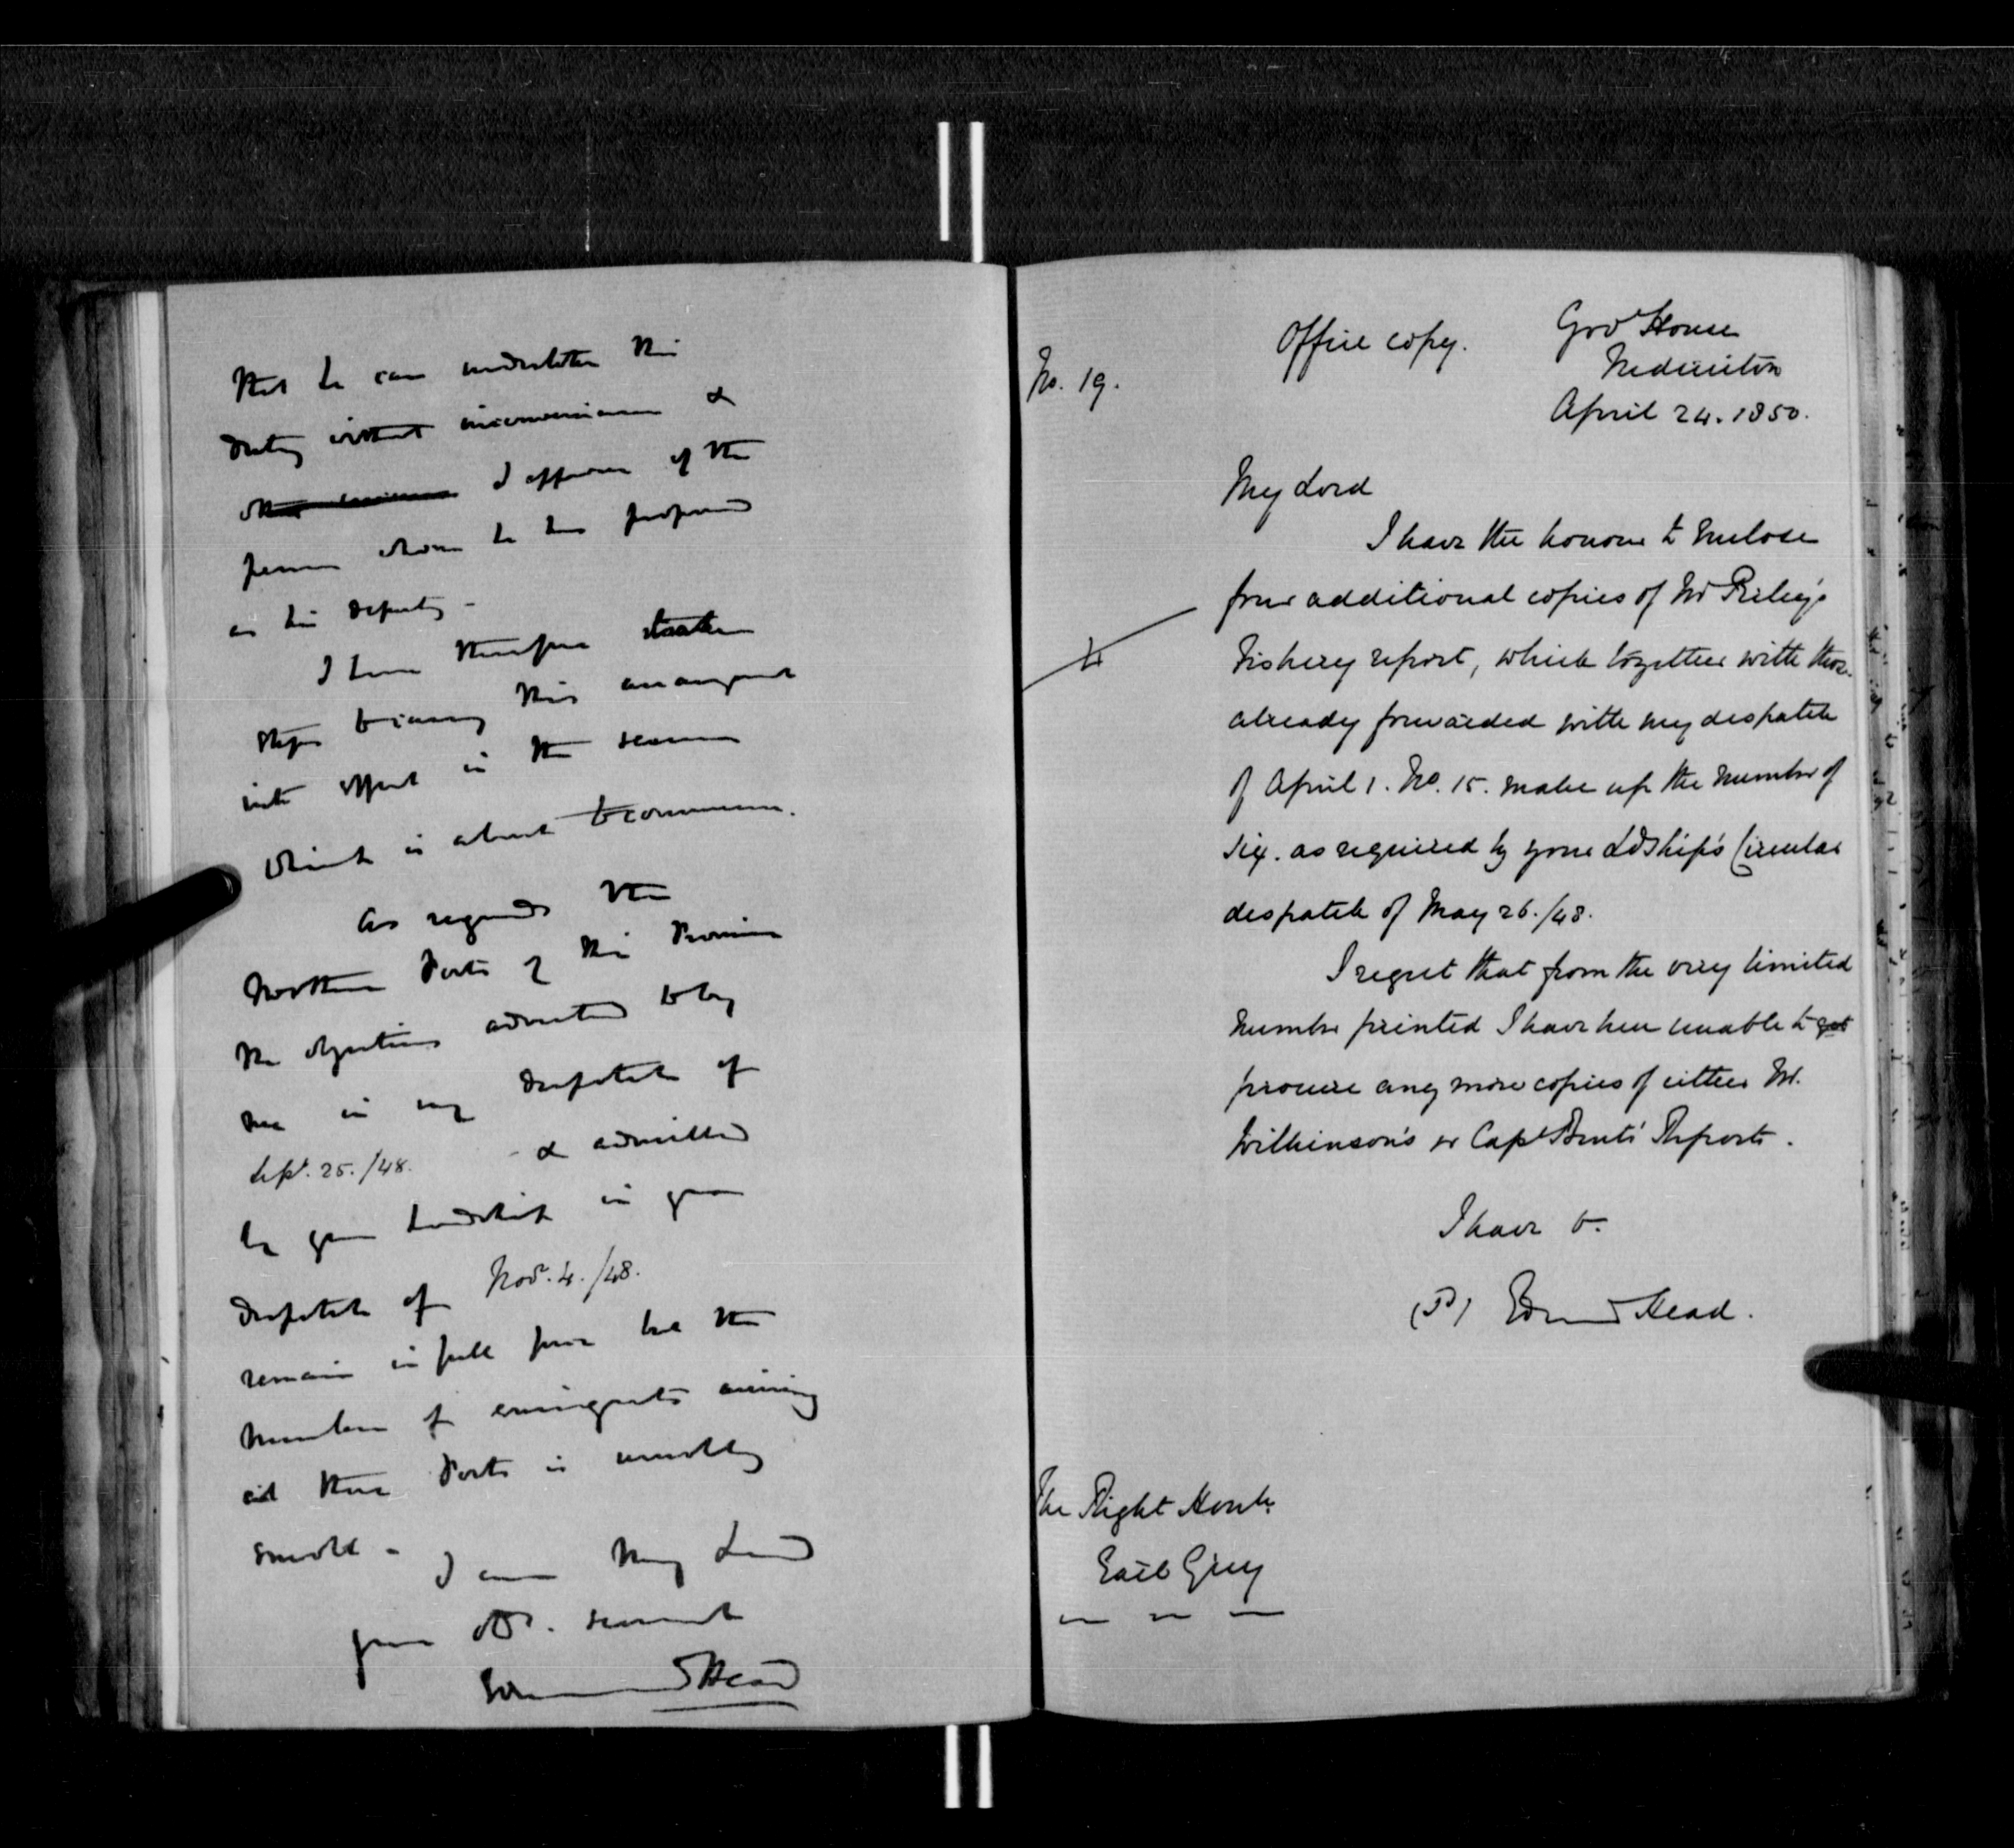 that he can undertake this
duty without inconvenience &
I approve of the
person whom he has proposed
as his deputy -
I have therefore taken
steps to carry this arrangement
into effect in the season
which is about to commence.
As regards the
Northern Ports of this Province
the objections adverted to by
me in my despatch of
Sept. 25./48. & admitted
by your Lordship in your
despatch of Novr. 4./48.
remain in full force but the
number of emigrants arriving
at these Ports is usually
small -
I am My Lord
your obt. servant
Edmund Head
Office copy.
Govt House
Fredericton
April 24. 1850.
No. 19.
My Lord
I have the honour to enclose
four additional copies of Mr Perley's
Fishery report, which together with those
already forwarded with my despatch
of April 1. No. 15. make up the number of
six. as required by your Ldship's Circular
despatch of May 26./48.
4
I regret that from the very limited
number printed I have been unable to get
procure any more copies of either Mr.
Wilkinson's or Capt Reports.
I have &.
(Sd) Edmund Head.
The Right Honble
Earl Grey